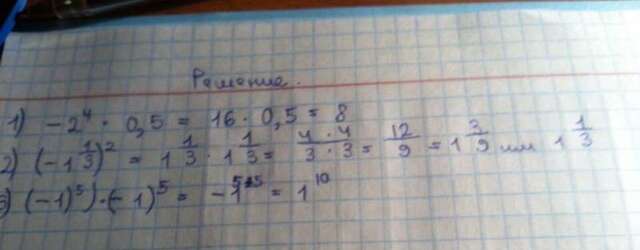 Решение.
1) -2⁴ · 0,5 = 16 · 0,5 = 8
2) (-1 1/3)² = 1 1/3 · 1 1/3 = (4 · 4)/(3 · 3) = 12/9 = 1 3/9 или 1 1/3
3) (-1)⁵) · (-1)⁵ = -1⁵⁺⁵ = 1¹⁰